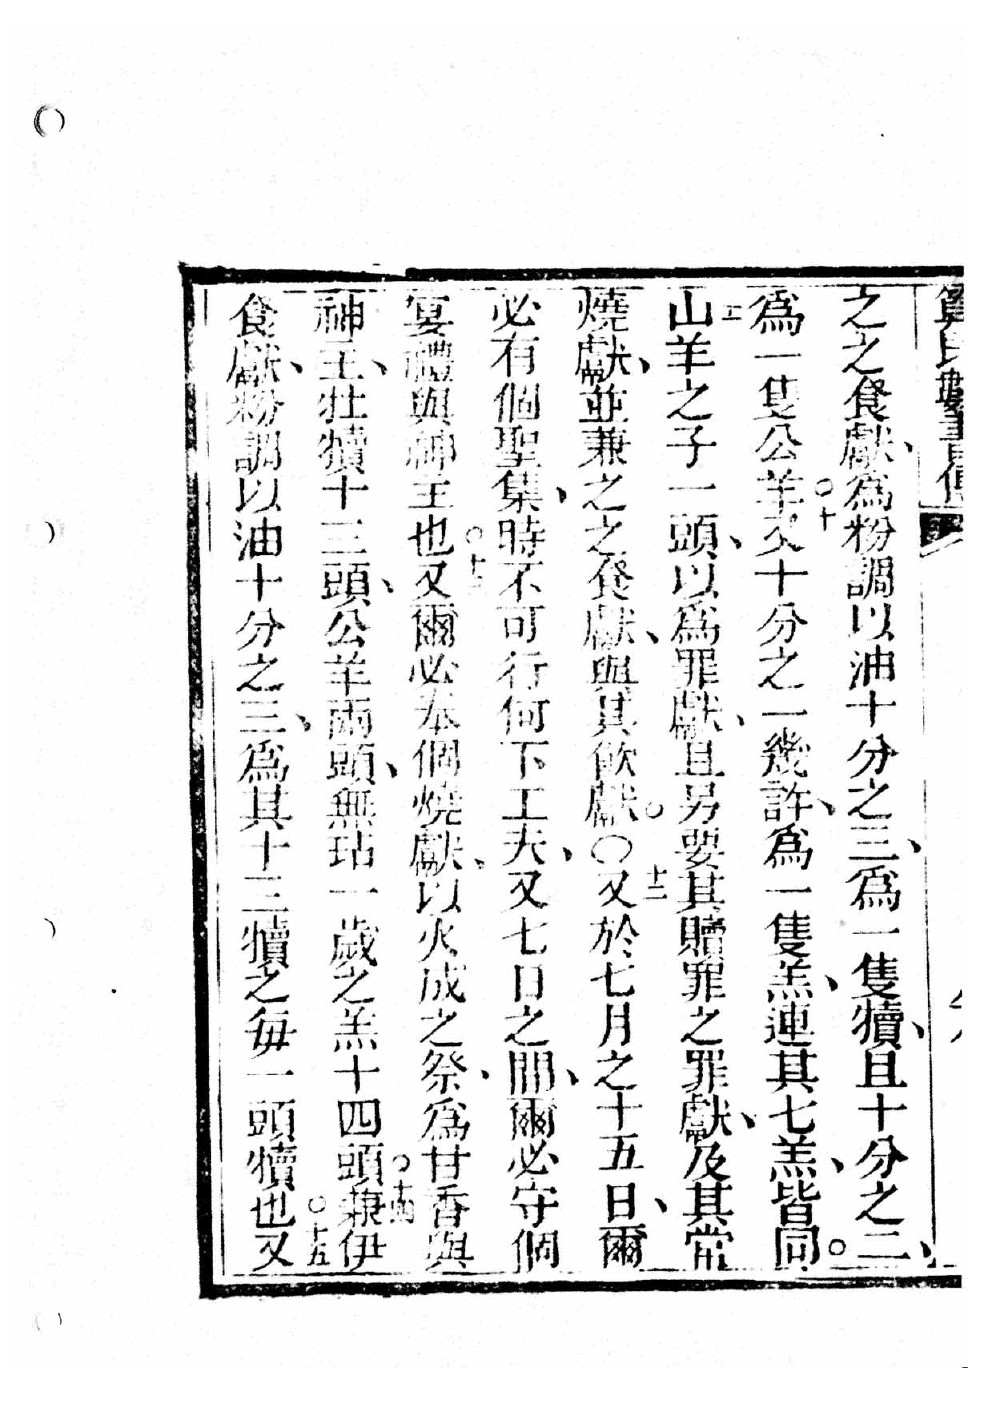 之之食獻、爲粉調以油十分之三、爲一隻犢、且十分之二、
爲一隻公羊○十又十分之一幾許、爲一隻羔、連其七羔、皆同。
十一山羊之子一頭、以爲罪獻、且另要其贖罪之罪獻、及其常
燒獻、並兼之之食獻、與其飲獻。○十二又於七月之十五日、爾
必有個聖集、時不可行何下工夫、又七日之間、爾必守個
宴禮與神主也○十三又爾必奉個燒獻、以火成之祭、爲甘香與
神主、壯犢十三頭、公羊兩頭、無玷一歲之羔十四頭○十四兼伊
食獻、粉調以油十分之三、爲其十三犢之每一頭犢也○十五又